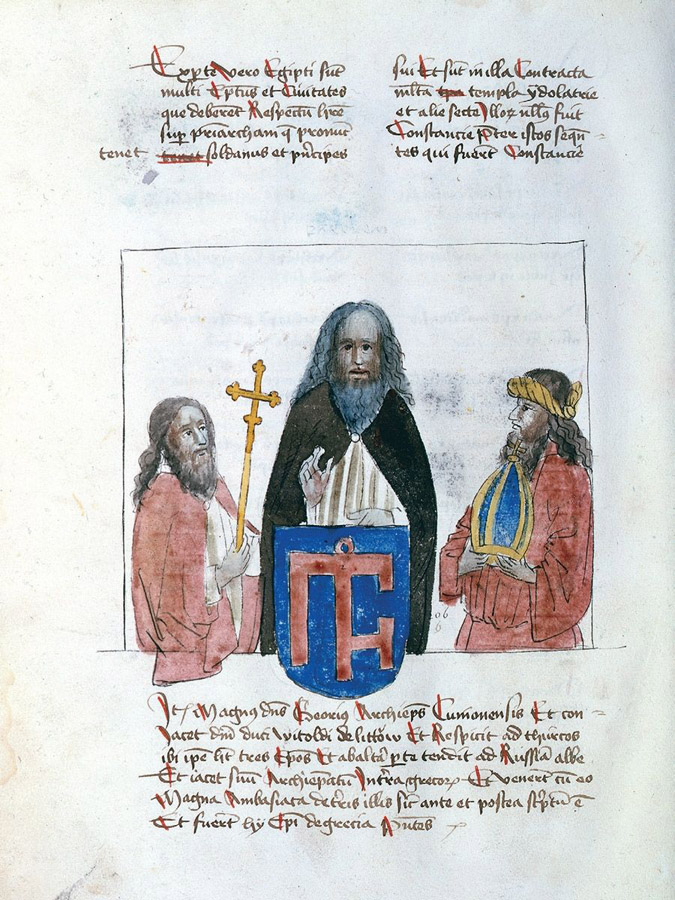 Ex parte vero Egipti sūt
multi Epātus et Ciuitates
que deberēt Respectū hr̄e
sup p̄riarcham q̄ pronūc
tenet soldanus et p̄ncipes
sui Et sūt in illa Contracta
ml̄ta templa ydolatrie
et alie secte Illoꝝ nllꝯ fuit
Constancie p̄ter istos seqn̄
tes qui fuer̄t Constancie
Itē Magnus dn̄s Georiꝰ Archiep̄s Et con
Jacet dn̄o duci Witoldi de littow Et Respicit ad thurcos
ibi ip̄e hꝫ tres Ep̄os Et ab alt̄a p̄te tendit ad Russiā albe
Et iacet suus Archiep̄atus Intra grecoꝝ Et venert cū eo
Magna Ambasiata de t̄ris illis sic̄ ante et postea sc̄ptū ē
Et fuert hy Ep̄i de grecia